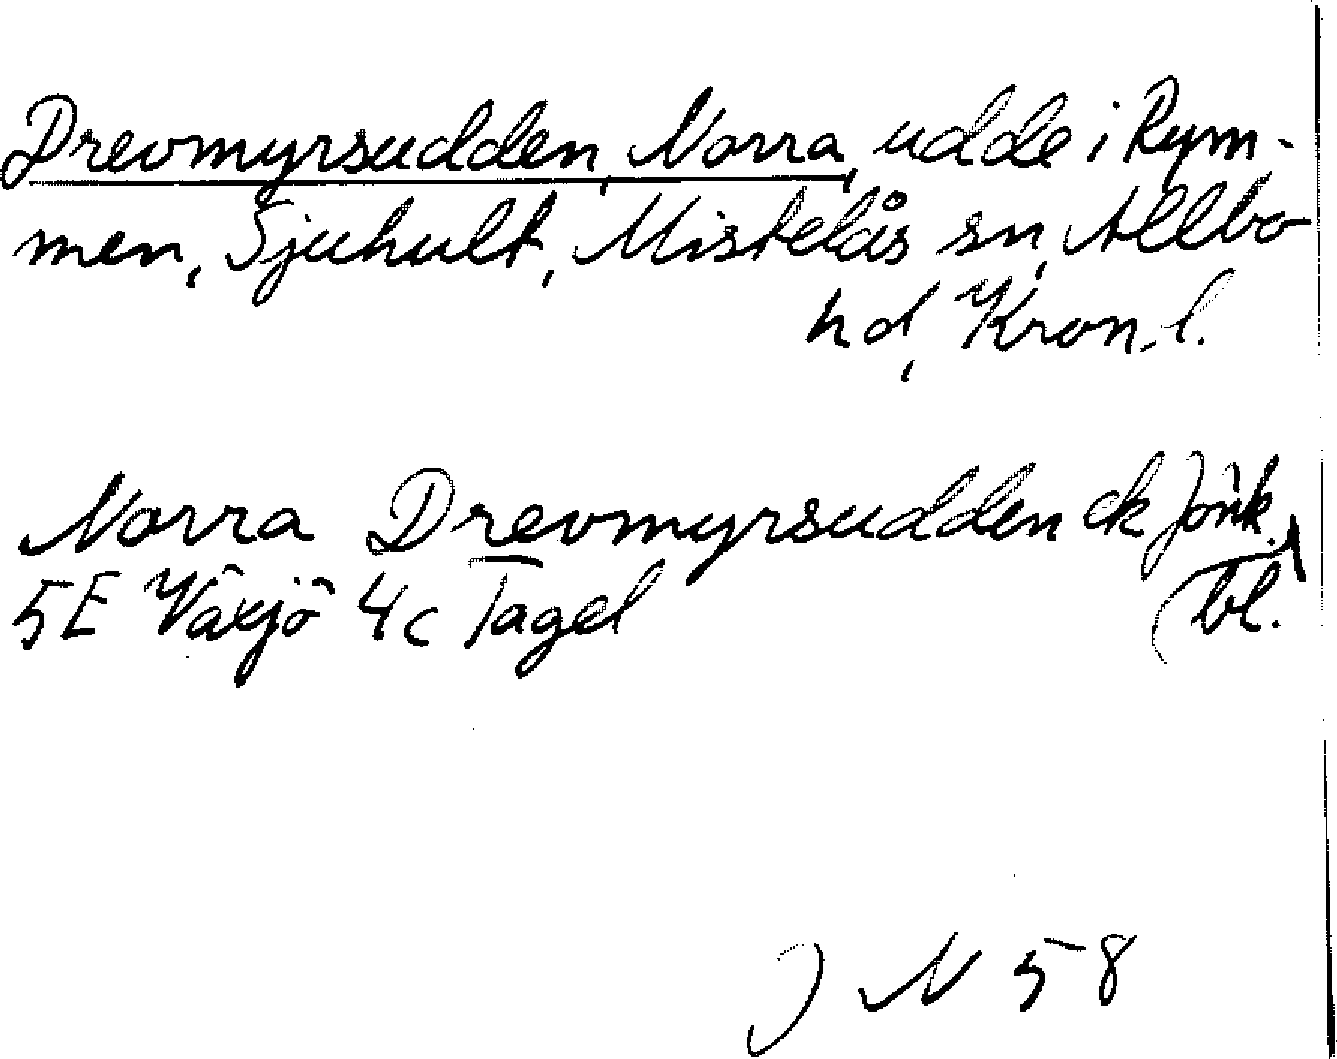 Drevmyrsudden, Norra, udde i Rym-
men, Sjuhult, Mistelås sn, Allbo
hd, Kron. l.
Norra Drevmyrsudden ek Jönk.
5E Växjö 4c Tagel bl.
J N 58